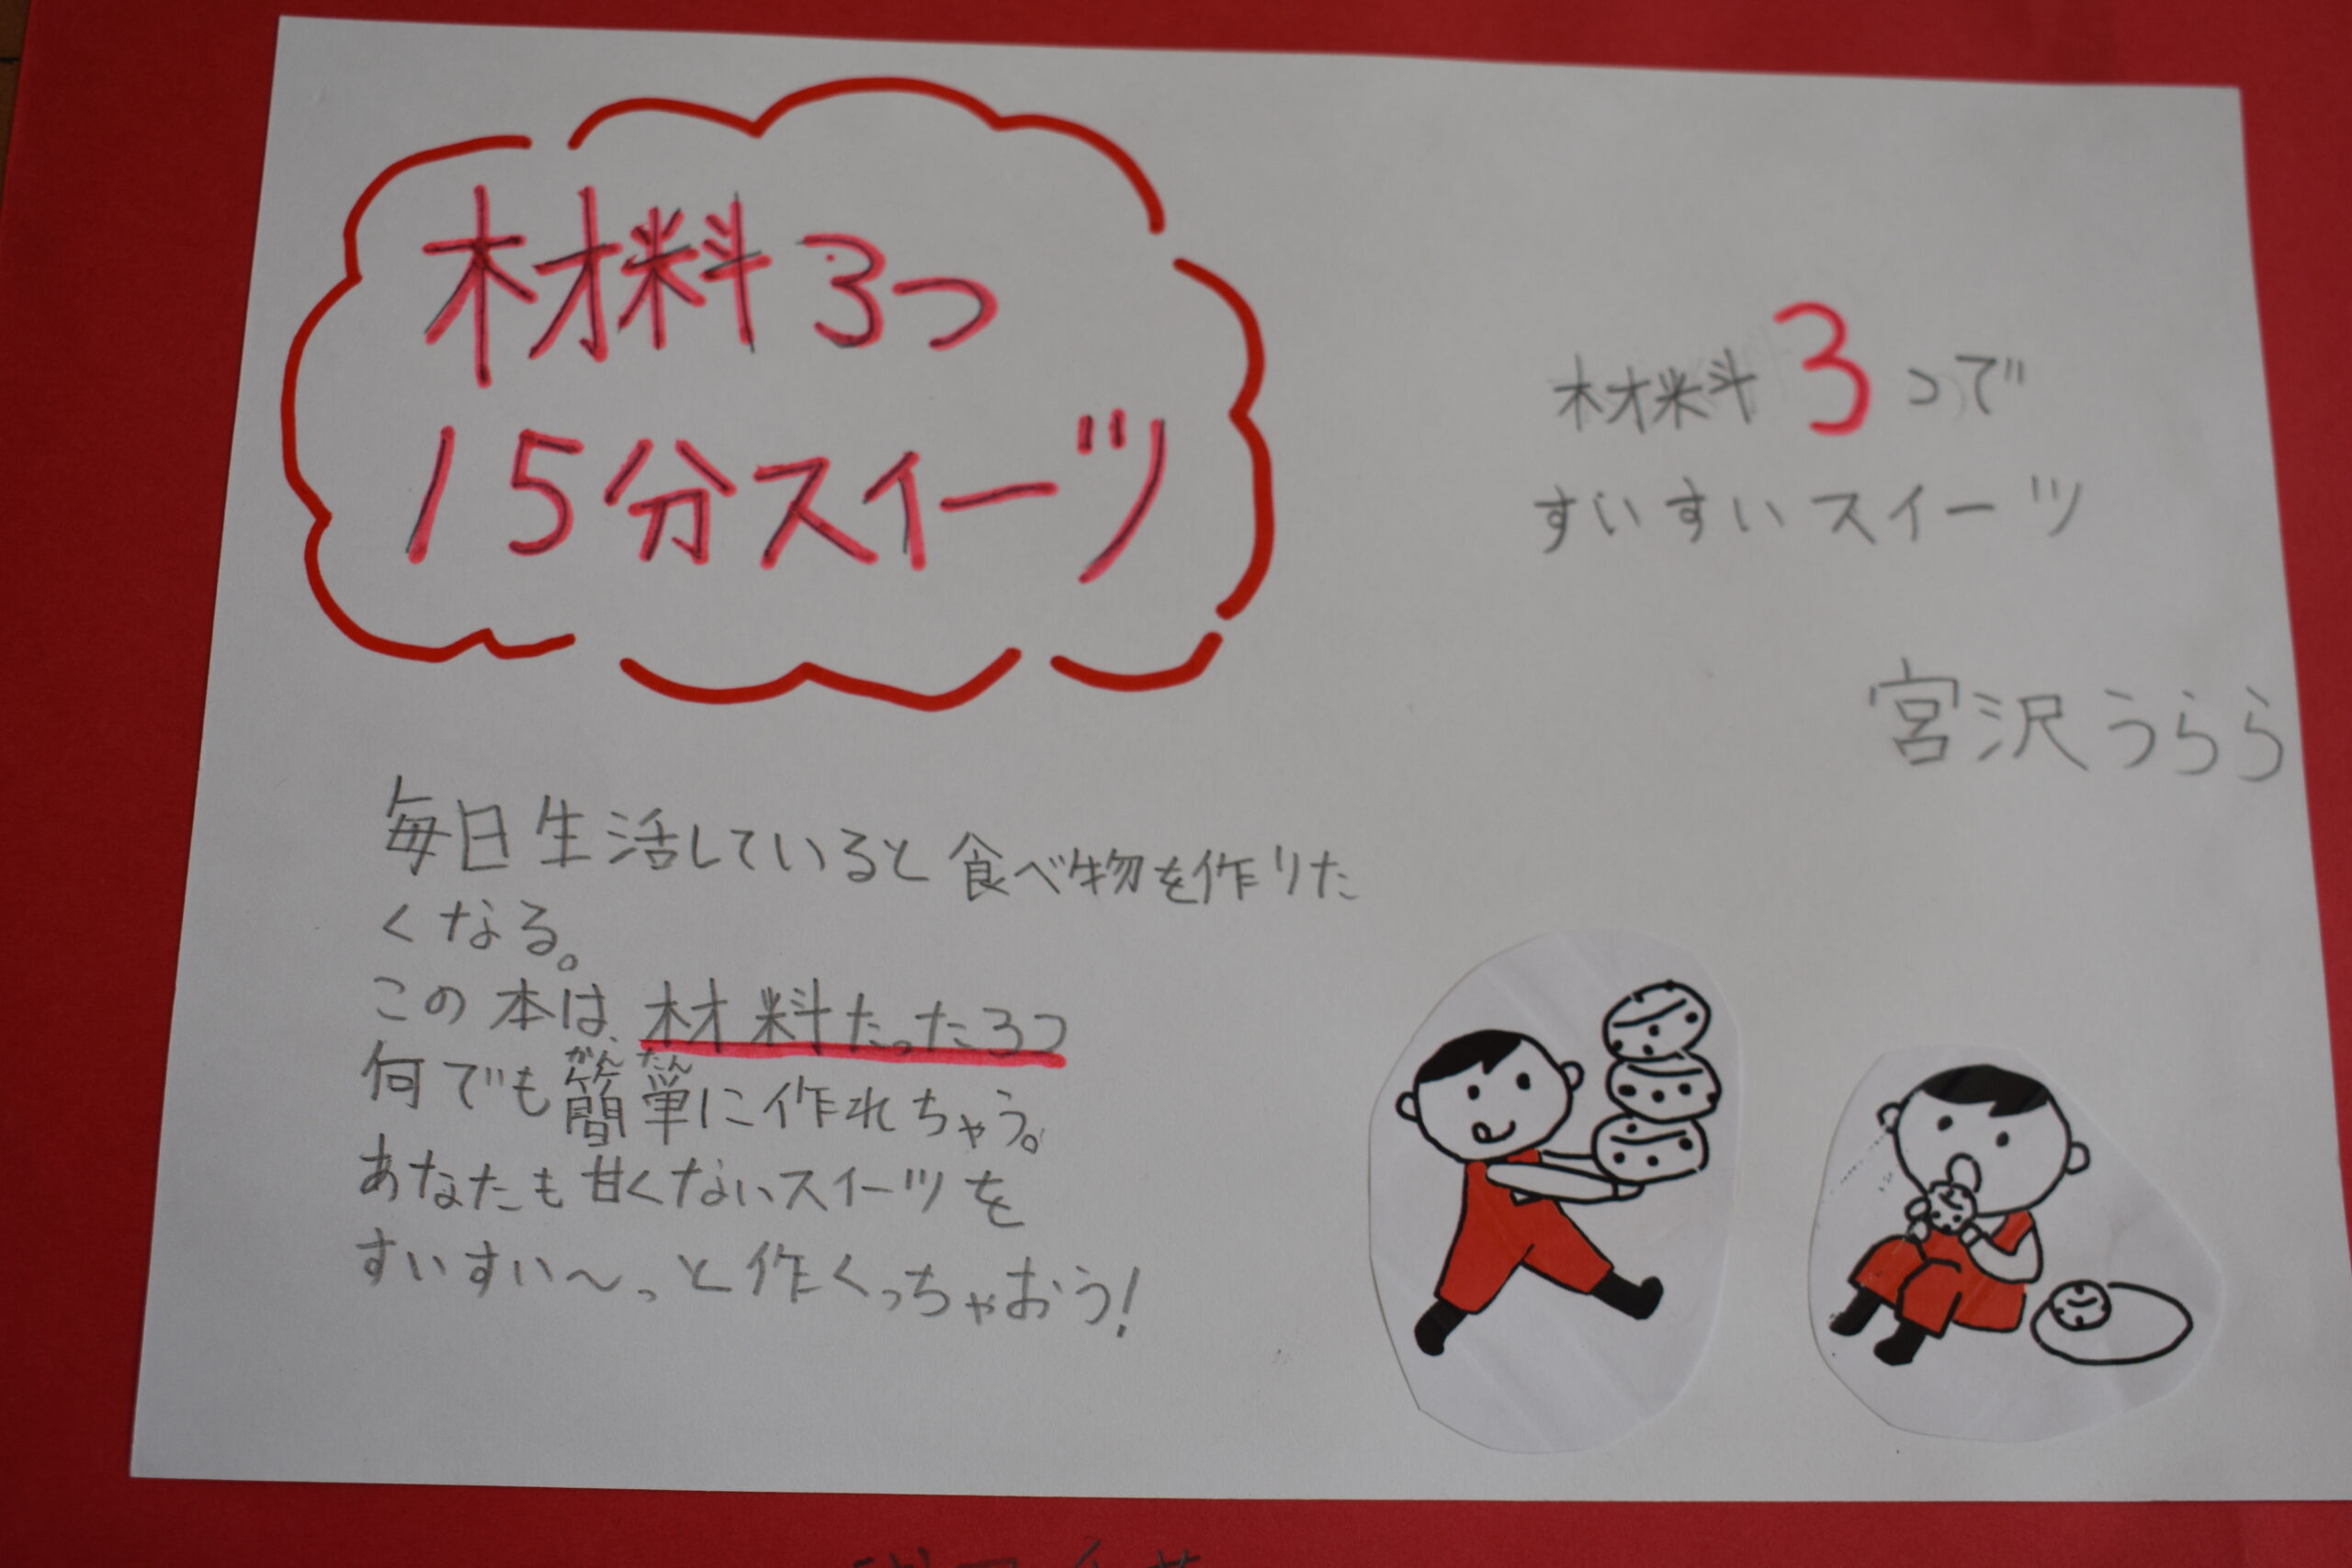 材料3つ
15分スイーツ
材料3つで
すいすいスイーツ
宮沢うらら
毎日生活していると食べ物を作りた
くなる。
この本は、材料たった3つ
かんたん
何でも簡単に作れちゃう。
あなたも甘くないスイーツを
すいすい〜っと作くっちゃおう!